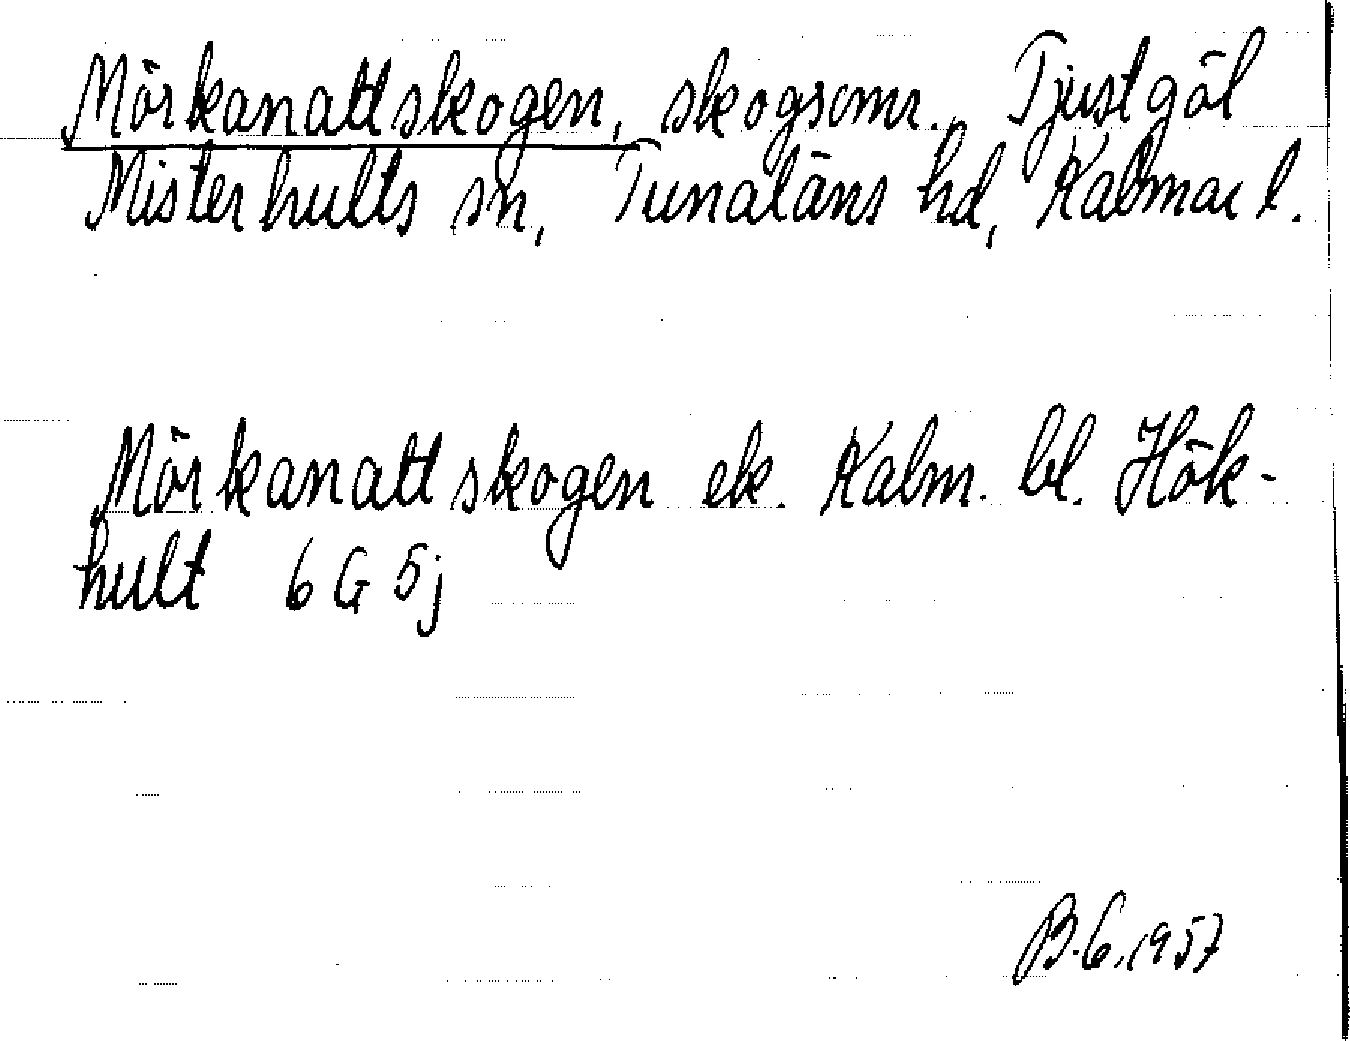 Mörkanattskogen, skogsomr., Tjustgöl
Misterhults sn, Tunaläns hd, Kalmar l.
Mörkanattskogen ek. Kalm. bl. Hök-
hult 6 G 5j
B.G.1957